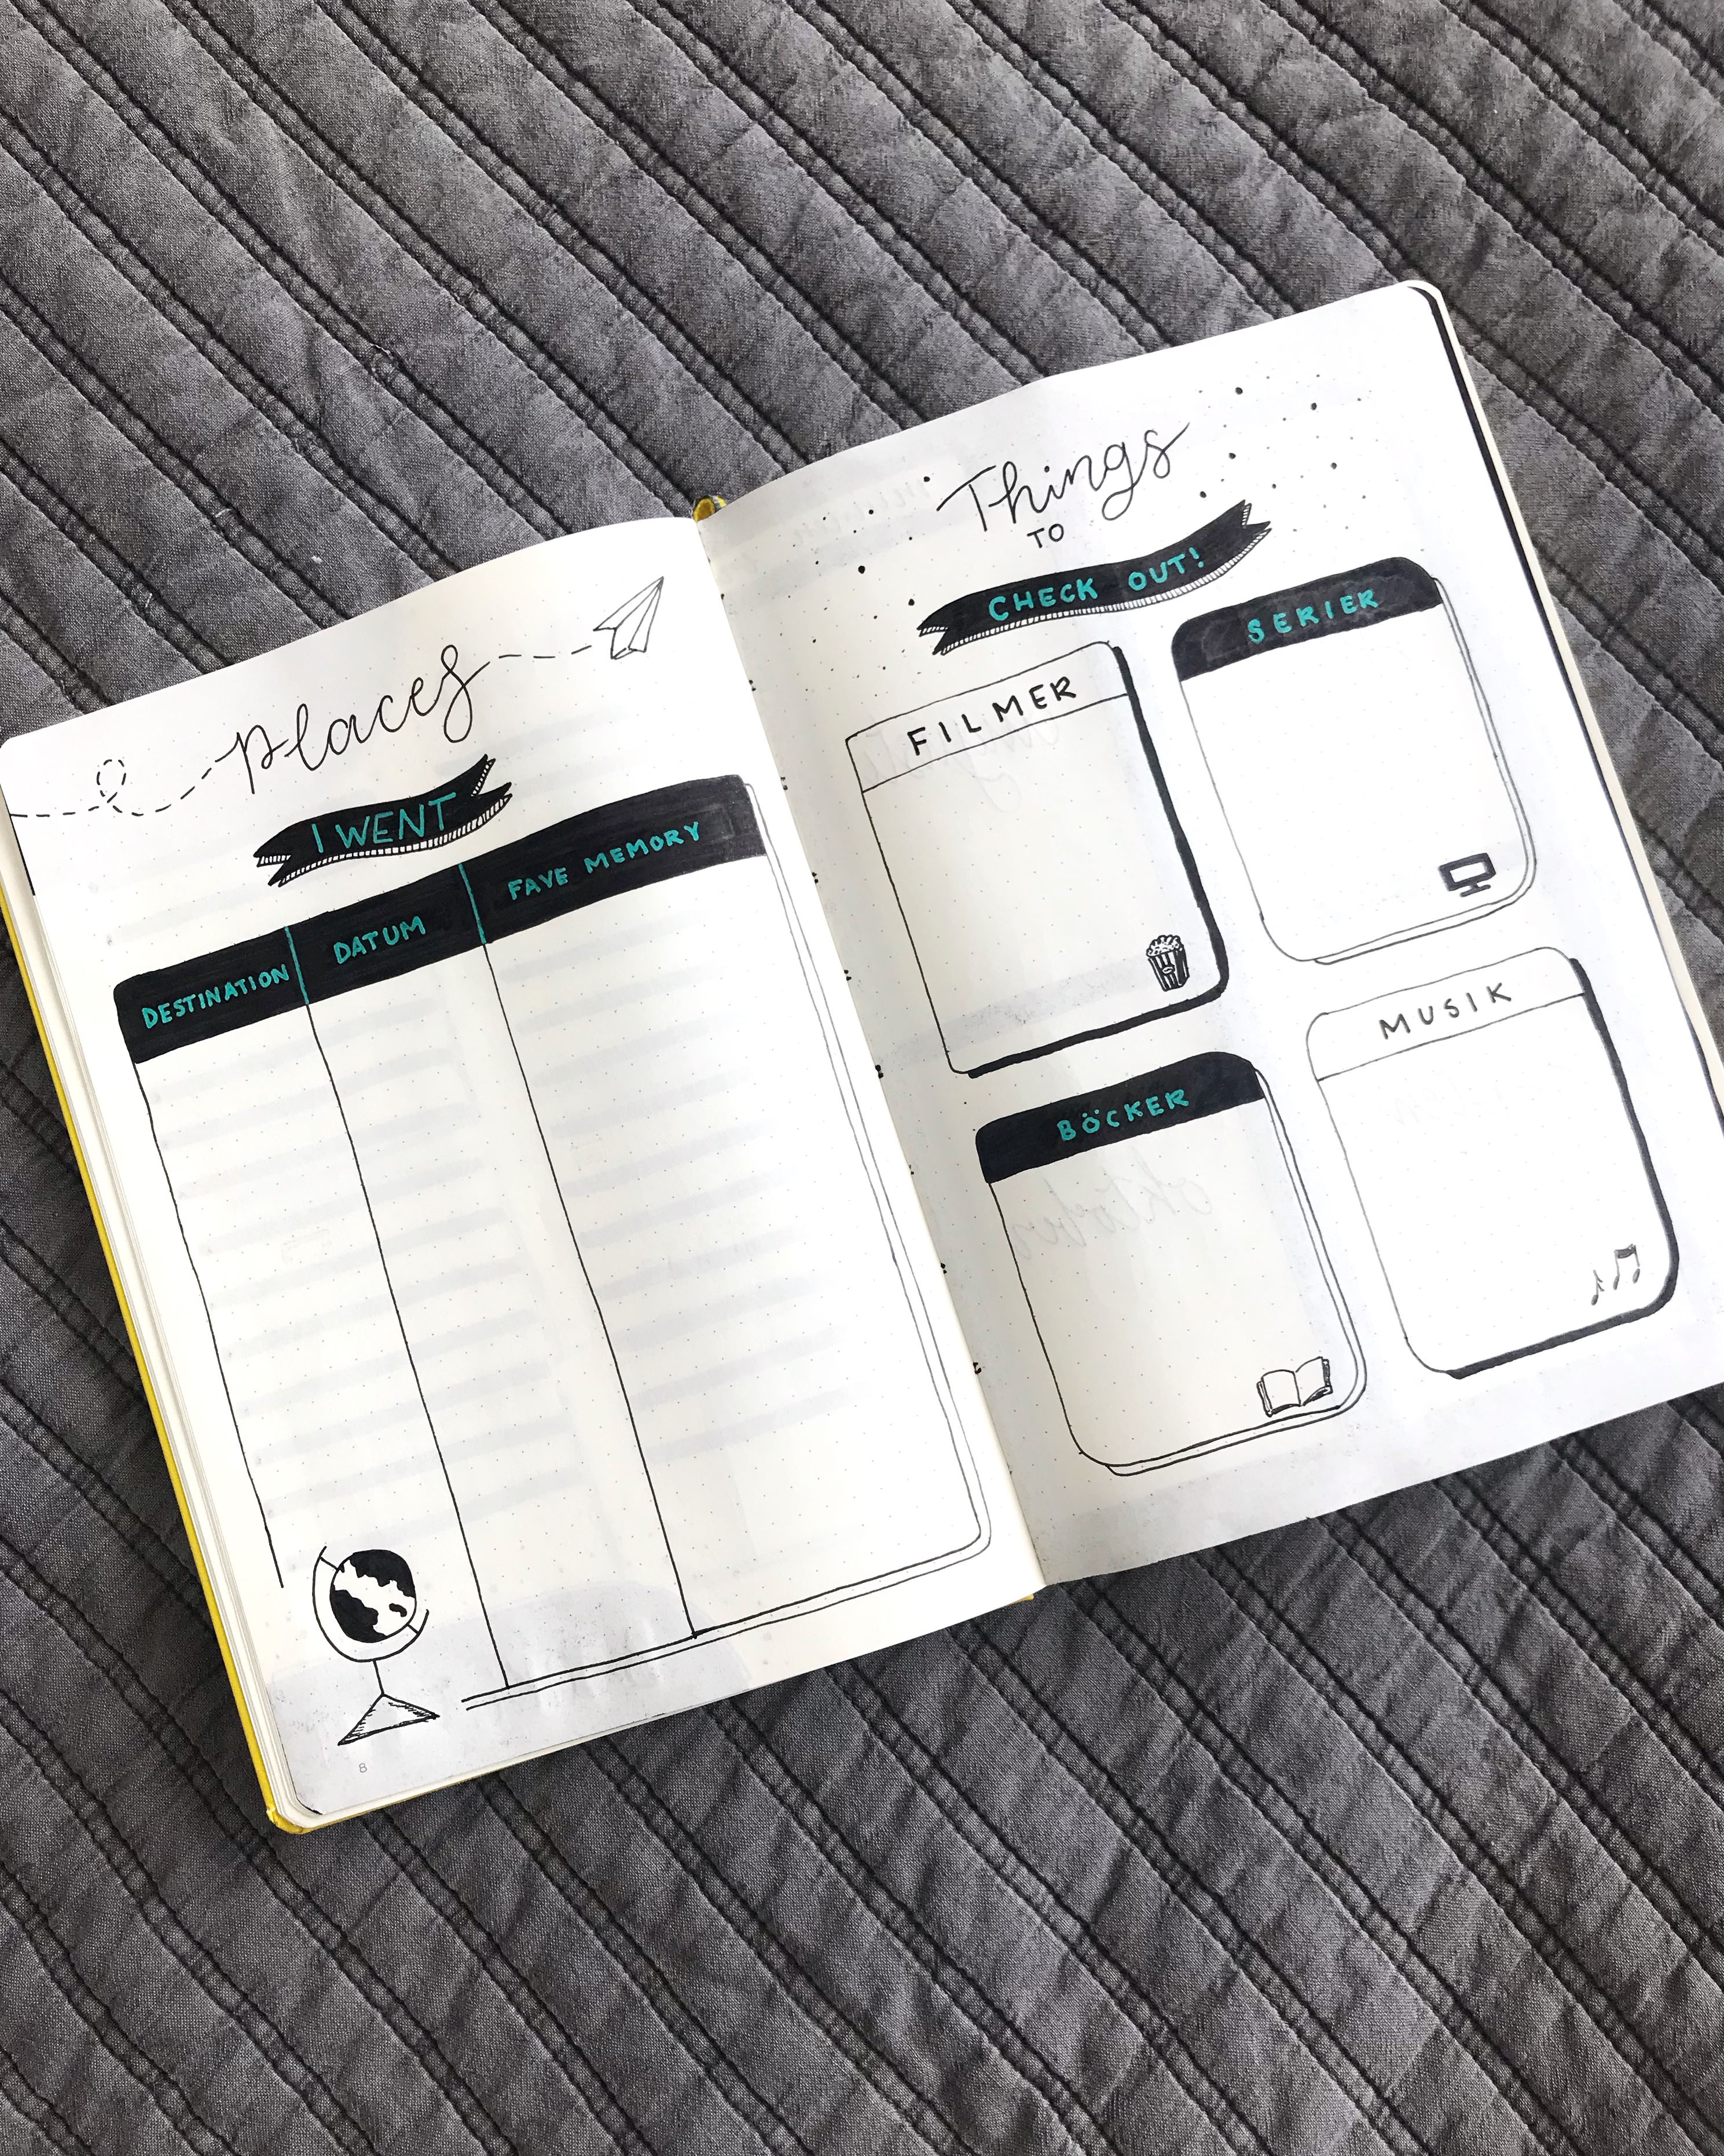 Places
I WENT
DESTINATION DATUM FAVE MEMORY
8
Things
TO
CHECK OUT!
FILMER
SERIER
BÖCKER
MUSIK
oktober